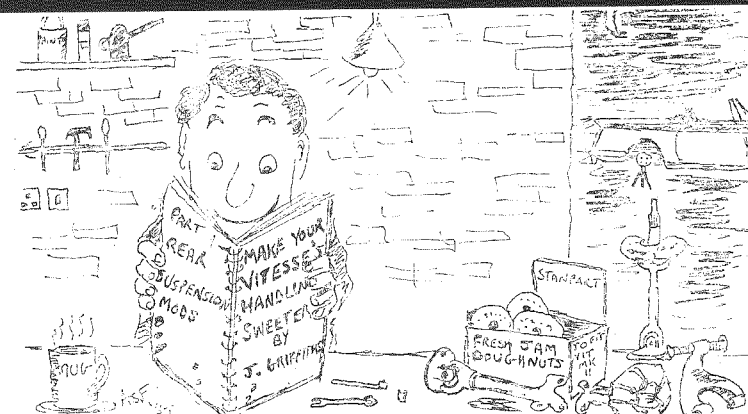 PAINT
PART
REAR
SUSPENSION
MODS
MAKE YOUR
VITESSE'S
HANDLING
SWEETER
BY
J. GRIFFITHS
STANPART
FRESH JAM
DOUGHNUTS
TO FIT
VIT
MK
II
MUG